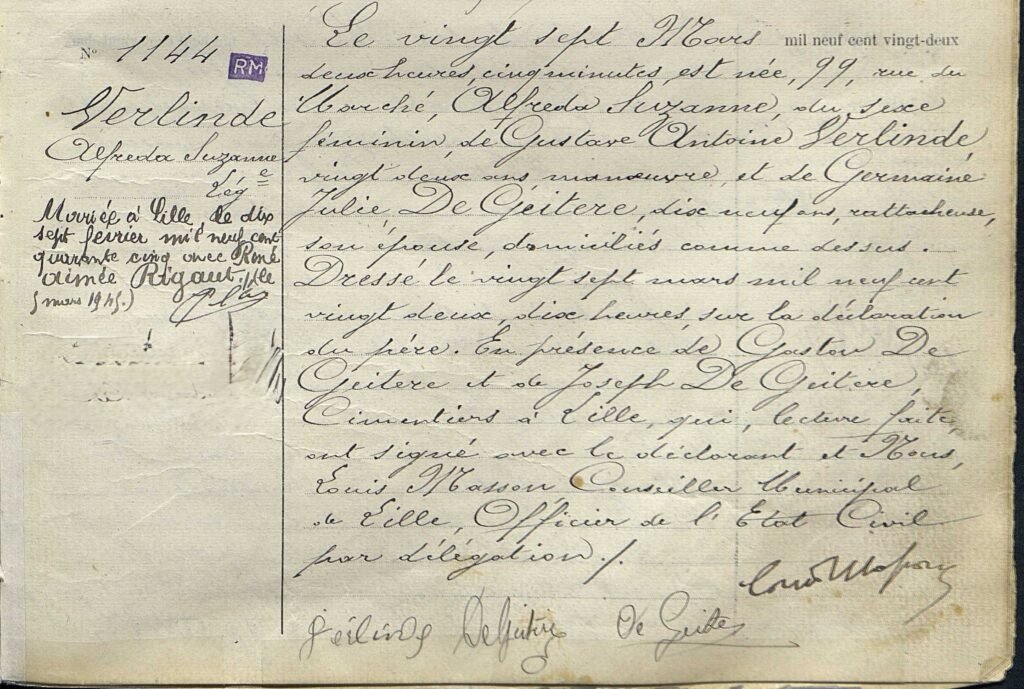 N° 1144
RM
Verlinde
Alfreda Suzanne
Légᵉ
Mariée à Lille, le dix
sept février mil neuf cent
quarante cinq avec René
aimée Rigaut. Lille
5 mars 1945.)
Le vingt sept Mars mil neuf cent vingt-deux
deux heures, cinq minutes, est née, 99, rue du
Marché, Alfreda Suzanne, du sexe
féminin, de Gustave Antoine Verlinde,
vingt deux ans manœuvre, et de Germaine
Julie, De Geitere, dix neuf ans, rattacheuse,
son épouse, domiciliés comme dessus.
Dressé le vingt sept mars mil neuf cent
vingt deux, dix heures, sur la déclaration
du père. En présence de Gaston De
Geitere et de Joseph De Geitere,
Cimentiers à Lille, qui, lecture faite,
ont signé avec le déclarant et Nous,
Louis Masson Conseiller Municipal
de Lille, Officier de l'Etat Civil
par délégation ./.